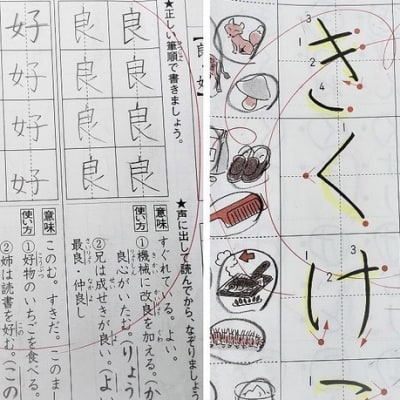 ★正しい筆順で書きましょう。
良良良良
良良良良
好好好好
★声に出して読んでから、なぞりましょう
意味 すぐれている。よい。
使い方 ①機械に改良を加える。(か
良心がいたむ。(りょう
②兄は成せきが良い。(よ
最良・仲良し
意味 このむ。すきだ。このま
使い方 ①好物のいちごを食べる。
②姉は読書を好む。(この
き
く
け